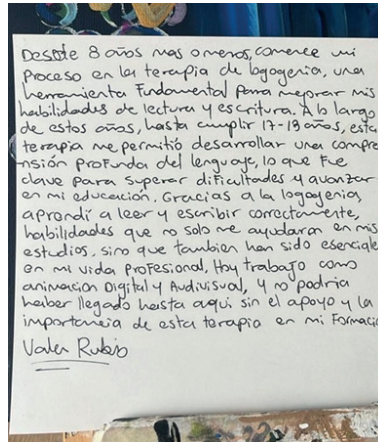 Desde 8 años mas o menos, comence mi
proceso en la terapia de logogenia, una
herramienta Fundamental para mejorar mis
habilidades de lectura y escritura. A lo largo
de estos años, hasta cumplir 17-18 años, esta
terapia me permitió desarrollar una compre
nsión profunda del lenguaje, lo que fue
clave para superar dificultades y avanzar
en mi educación. Gracias a la logogenia,
aprendí a leer y escribir correctamente,
habilidades que no solo me ayudaron en mis
estudios, sino que tambien han sido esenciale
en mi vida profesional, Hoy trabajo como
animación Digital y Audivisual, y no podria
haber llegado hasta aqui sin el apoyo y la
importancia de esta terapia en mi Formació
Rubio